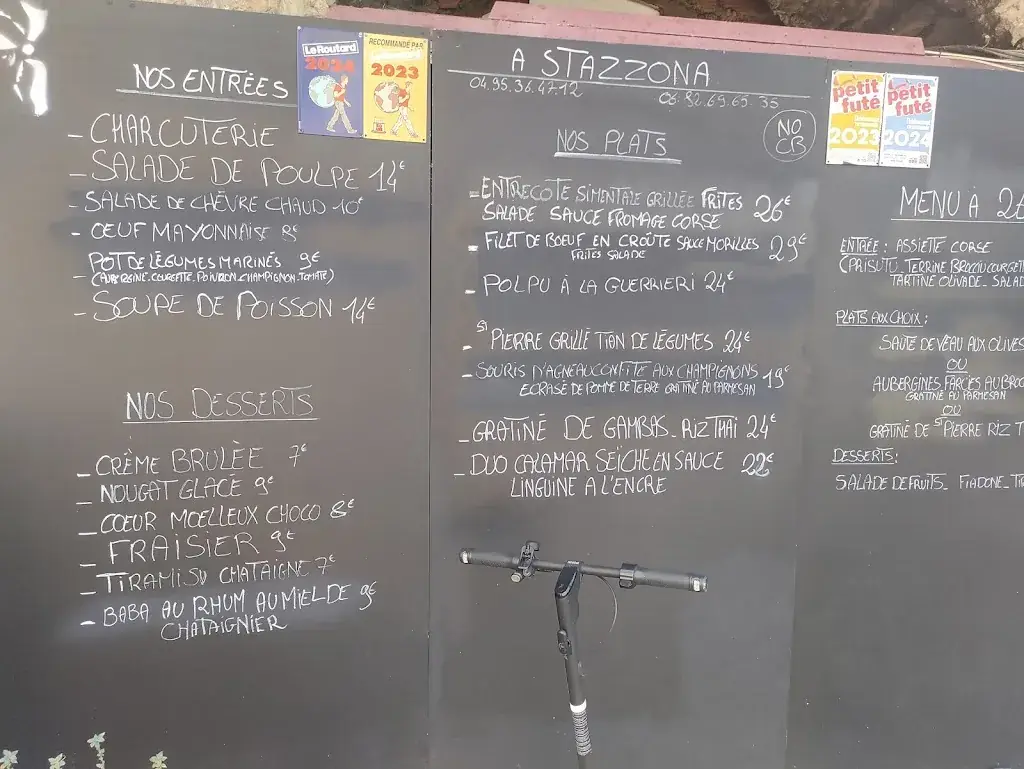 NOS ENTRÉES
- CHARCUTERIE
- SALADE DE POULPE 14€
- SALADE DE CHÈVRE CHAUD 10€
- OEUF MAYONNAISE 8€
- POT DE LÉGUMES MARINÉS 9€
(AUBERGINE. COURGETTE. POIVRON. CHAMPIGNON. TOMATE)
- SOUPE DE POISSON 14€
NOS DESSERTS
- CRÈME BRULÈE 7€
- NOUGAT GLACÉ 9€
- COEUR MOELLEUX CHOCO 8€
- FRAISIER 9€
- TIRAMISU CHATAIGNE 7€
- BABA AU RHUM AU MIEL DE 9€
CHATAIGNIER
Le Routard
2024
RECOMMANDÉ PAR
2023
A STAZZONA
04.95.36.47.12
06.82.69.65.35
NO
CB
NOS PLATS
- ENTRECÔTE SIMENTALE GRILLÉE FRITES
SALADE SAUCE FROMAGE CORSE 26€
- FILET DE BOEUF EN CROÛTE SAUCE MORILLES 29€
FRITES SALADE
- POLPU À LA GUERRIERI 24€
- St PIERRE GRILLÉ TIAN DE LÉGUMES 24€
- SOURIS D'AGNEAU CONFITE AUX CHAMPIGNONS 19€
ECRASÉ DE POMME DE TERRE GRATINÉ AU PARMESAN
- GRATINÉ DE GAMBAS - RIZ THAI 24€
- DUO CALAMAR SEICHE EN SAUCE 22€
LINGUINE A L'ENCRE
petit
futé
2023
petit
futé
2024
MENU À 2
ENTRÉE : ASSIETTE CORSE
(PRISUTU - TERRINE BROCCIU COURGET
TARTINE OLIVADE - SALAD
PLATS AUX CHOIX :
SAUTÉ DE VEAU AUX OLIVES
OU
AUBERGINES FARCIES AU BROC
GRATINÉ AU PARMESAN
OU
GRATINÉ DE St PIERRE RIZ T
DESSERTS :
SALADE DE FRUITS - FIADONE - TI